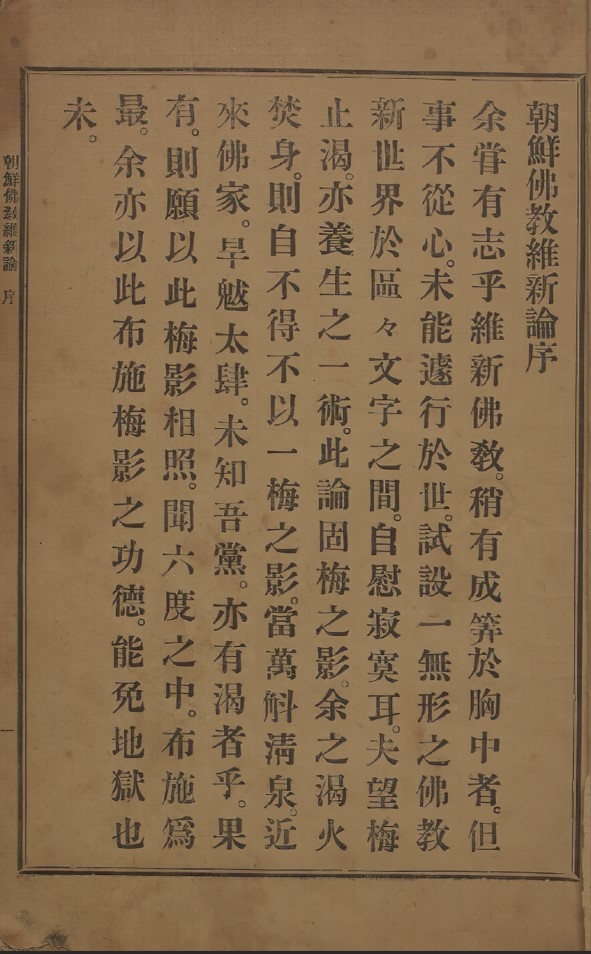 朝鮮佛教維新論序
余嘗有志乎維新佛教。稍有成筭於胸中者。但
事不從心。未能遽行於世。試設一無形之佛教
新世界於區々文字之間。自慰寂寞耳。夫望梅
止渴。亦養生之一術。此論固梅之影。余之渴火
焚身。則自不得不以一梅之影。當萬斛淸泉。近
來佛家。旱魃太肆。未知吾黨。亦有渴者乎。果
有。則願以此梅影相照。聞六度之中。布施爲
最。余亦以此布施梅影之功德。能免地獄也
未。
朝鮮佛敎維新論 序